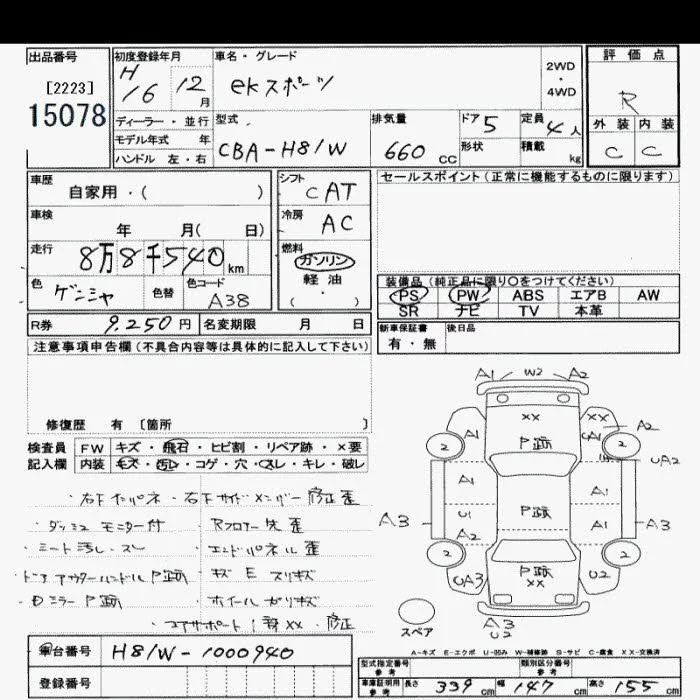 出品番号
[2223]
15078
初度登録年月
H
16 12 月
車名・グレード
ekスポーツ
2WD
・
4WD
評価点
R
外装 内装
C C
ディーラー・並行
モデル年式 年
ハンドル 左・右
型式
CBA-H81W
排気量
660 CC
ドア 5
形状
定員 4人
積載 kg
車歴
自家用・( )
車検
年 月( 日)
走行
8万8千540 km
色
ゲンミャ
色替
色コード
A38
シフト
CAT
冷房
AC
燃料
ガソリン
軽油
( )
セールスポイント(正常に機能するものに限ります)
装備品(純正品に限り○をつけてください)
PS PW ABS エアB AW
SR ナビ TV 本革
新車保証書
有・無
後日品
R券 9.250円 名変期限 月 日
注意事項申告欄(不具合内容等は具体的に記入して下さい)
修復歴 有 〔箇所 〕
検査員
記入欄
FW キズ・飛石・ヒビ割・リペア跡・×要
内装 キズ・汚レ・コゲ・穴・スレ・キレ・破レ
・右下インパネ・右下サイドメンバー修正歪
・ダッシュモニター付
Rフロアー先歪
・シート汚し・スレ
エンドパネル歪
・ドアアウターハンドルP跡
キズ E スリキズ
・Dミラー P跡
ホイールガリキズ
・コアサポート1部XX・修正
車台番号 H81W-1000940
登録番号
A1 W2 A2
XX XX
A1 A2
2 P跡 2
UA2
A1 A1
A3 U1 P跡 A1 A3
A2
2 P跡 2
XX
UA3 U2
スペア
A3
U2
A-キズ E-エクボ U-凹み W-補修跡 S-サビ C-腐食 XX-交換済
型式指定番号
参考
類別区分番号
参考
車庫証明用
参考
長さ 339 cm 幅 147 cm 高さ 155 cm